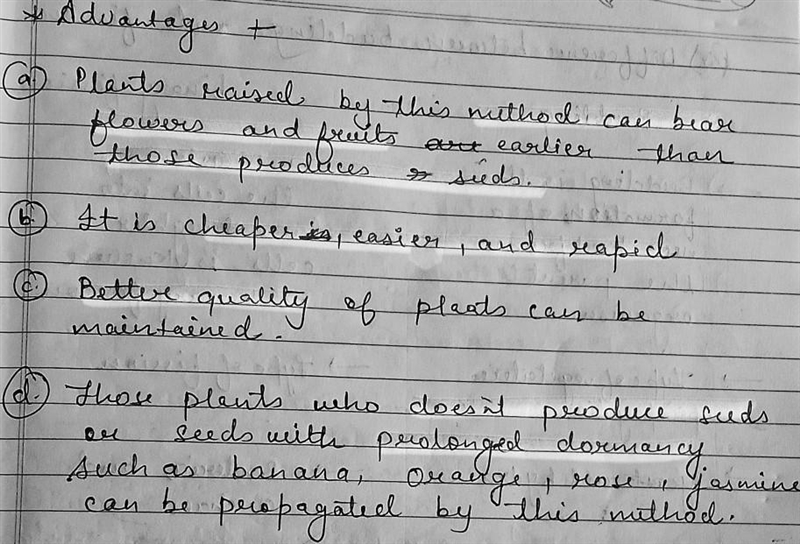 * Advantages +
(a) Plants raised by this method can bear
flowers and fruits earlier than
those produces seeds.
(b) It is cheaper, easier, and reapid
(c) Better quality of plants can be
maintained.
(d) Those plants who does'nt produce seeds
or seeds with prolonged dormancy
such as banana, orange, rose, jasmine
can be propagated by this method.